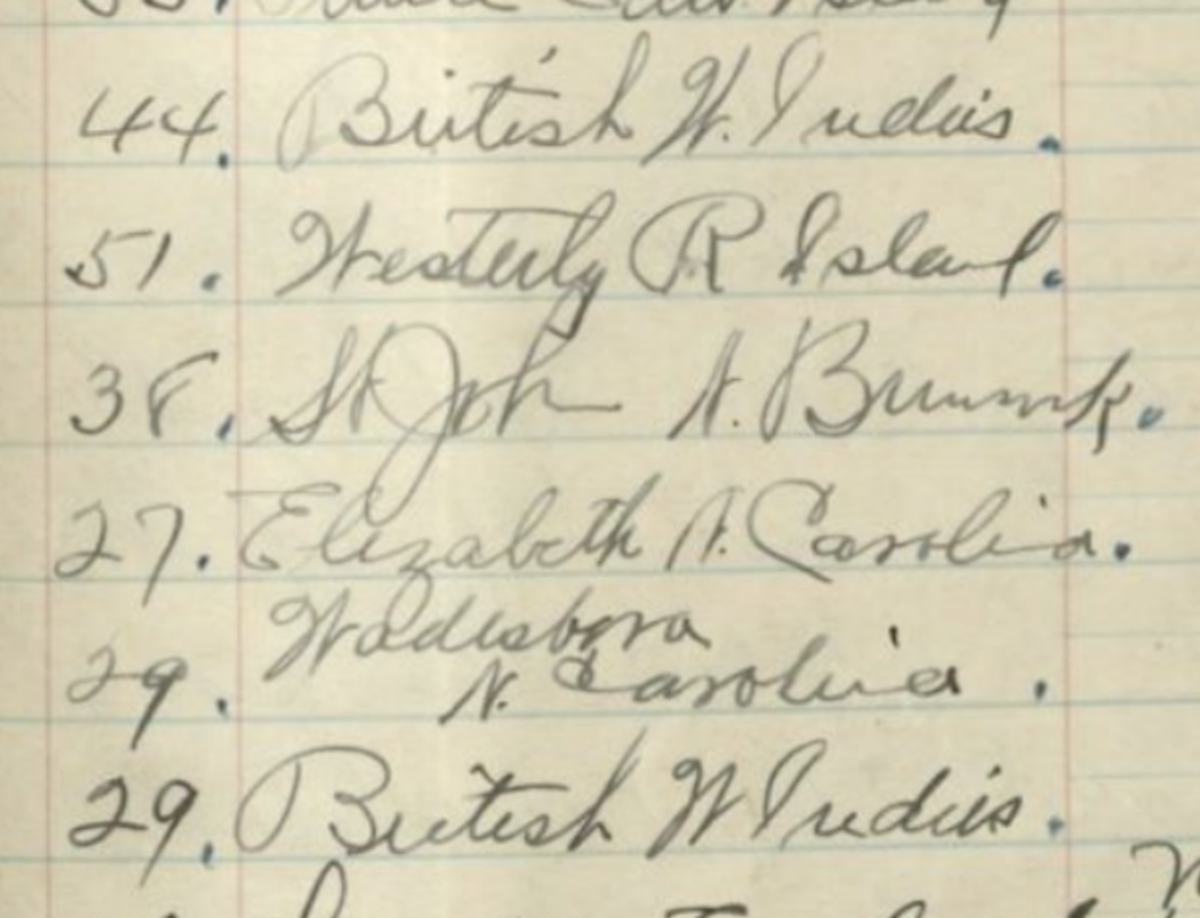 44. British W. Indies.
51. Westerly R Island.
38. St John N. Brunswk.
27. Elizabeth N. Carolina.
Wadesboro
29. N. Carolina.
29. British W Indies.